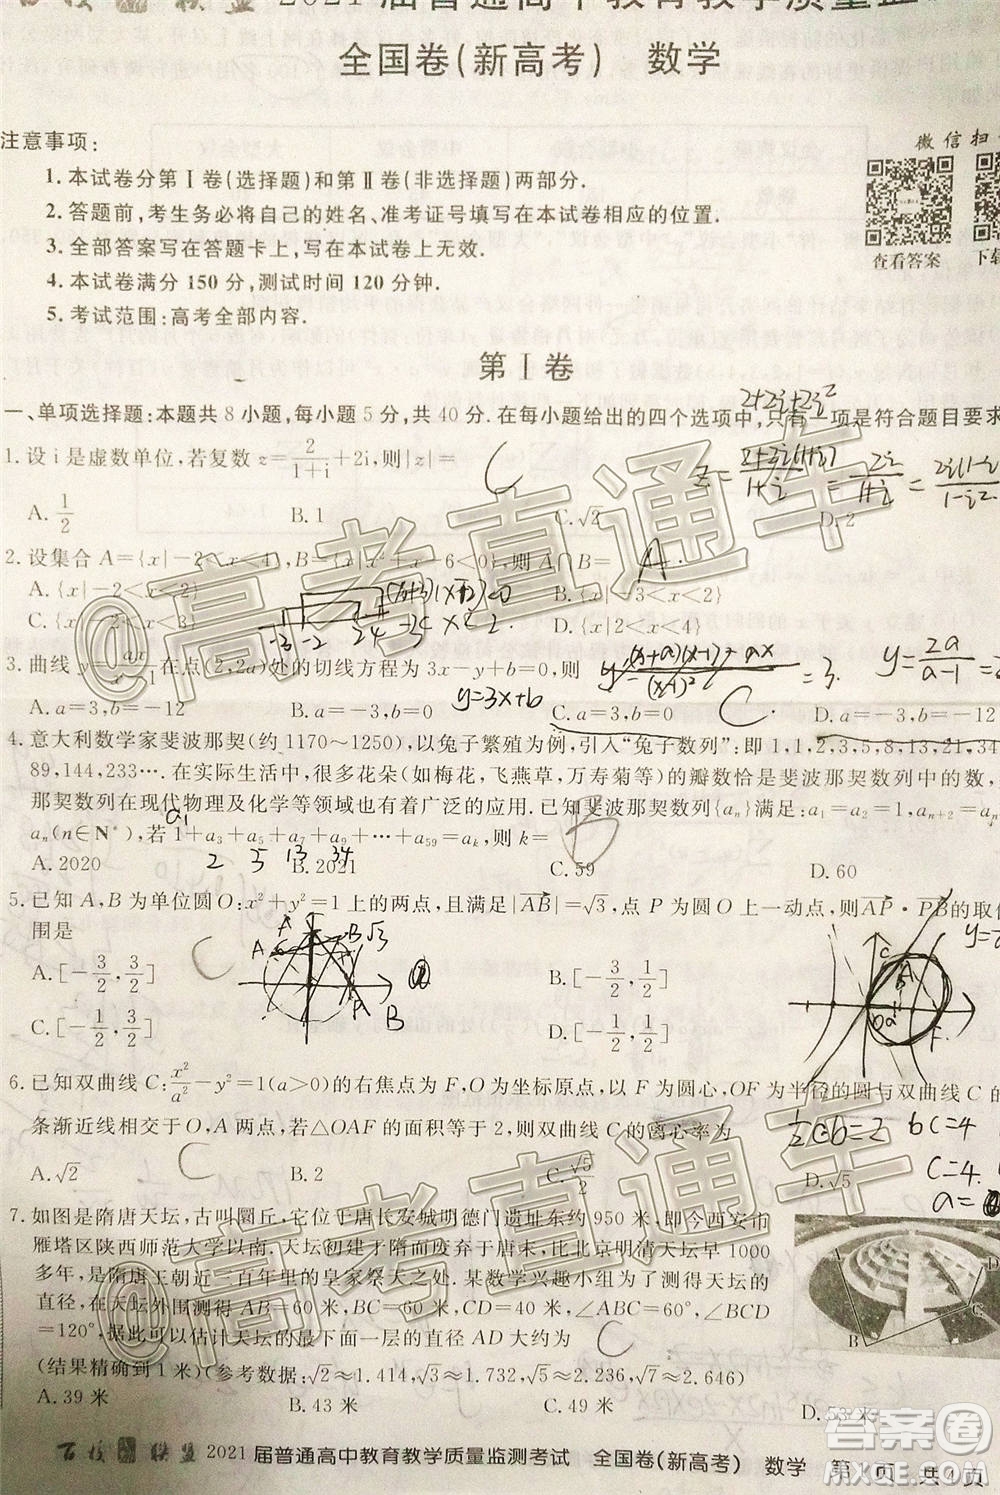 2021届普通高中教育教学质量监
全国卷(新高考) 数学
注意事项:
微信扫
1.本试卷分第Ⅰ卷(选择题)和第Ⅱ卷(非选择题)两部分.
2.答题前,考生务必将自己的姓名、准考证号填写在本试卷相应的位置.
3.全部答案写在答题卡上,写在本试卷上无效.
查看答案 下载
4.本试卷满分150分,测试时间120分钟.
5.考试范围:高考全部内容.
第Ⅰ卷
一、单项选择题:本题共8小题,每小题5分,共40分.在每小题给出的四个选项中,只有一项是符合题目要求
1.设i是虚数单位,若复数z=2/(1+i)+2i,则|z|=
C
A.1/2 B.1 C.√2 D.2
2.设集合A={x|-2<x<4},B={x|x²+x-6<0},则A∩B=
A
A.{x|-2<x<2} B.{x|-3<x<2}
C.{x|-3<x<4} D.{x|-2<x<2}
3.曲线y=ax/(x-1)在点(2,2a)处的切线方程为3x-y+b=0,则
y=3x+b
C
A.a=3,b=-12 B.a=3,b=0 C.a=-3,b=0 D.a=-3,b=-12
4.意大利数学家斐波那契(约1170～1250),以兔子繁殖为例,引入“兔子数列”:即1,1,2,3,5,8,13,21,34
89,144,233….在实际生活中,很多花朵(如梅花,飞燕草,万寿菊等)的瓣数恰是斐波那契数列中的数,
那契数列在现代物理及化学等领域也有着广泛的应用.已知斐波那契数列{aₙ}满足:a₁=a₂=1,aₙ₊₂=
aₙ(n∈N*),若1+a₃+a₅+a₇+a₉+…+a₅₉=aₖ,则k=
B
A.2020 B.2021 C.59 D.60
2 5 13 34
5.已知A,B为单位圆O:x²+y²=1上的两点,且满足|AB|=√3,点P为圆O上一动点,则AP·PB的取值
围是
C
A.[-3/2,3/2] B.[-3/2,1/2]
C.[-1/2,3/2] D.[-1/2,1/2]
6.已知双曲线C:x²/a²-y²=1(a>0)的右焦点为F,O为坐标原点,以F为圆心,OF为半径的圆与双曲线C的
条渐近线交于O,A两点,若△OAF的面积等于2,则双曲线C的离心率为
C
A.√2 B.2 C.√5/2 D.√5
7.如图是隋唐天坛,古叫圜丘,它位于唐长安城明德门遗址东约950米,即今西安市
雁塔区陕西师范大学以南.天坛初建于隋而废弃于唐末,比北京明清天坛早1000
多年,是隋唐王朝近三百年里的皇家祭天之地.某数学兴趣小组为了测得天坛的
直径,在天坛外围测得AB=60米,BC=60米,CD=40米,∠ABC=60°,∠BCD
=120°,据此可以估计天坛的最下面一层的直径AD大约为
C
(结果精确到1米)(参考数据:√2≈1.414,√3≈1.732,√5≈2.236,√7≈2.646)
A.39米 B.43米 C.49米 D.53米
2021届普通高中教育教学质量监测考试 全国卷(新高考) 数学 第1页 共4页
@高考直通车
高考直通车
答案圈
MXQE.COM